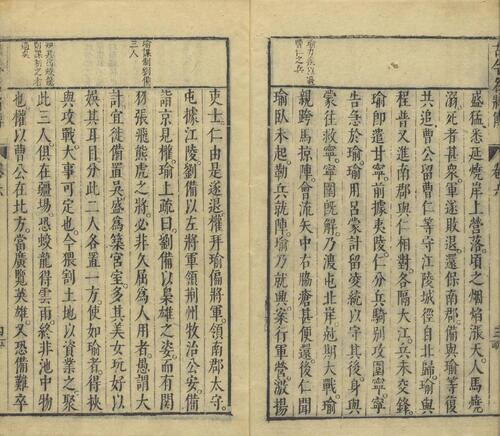 盛猛悉延燒岸上營落頃之烟焰漲天人馬燒
溺死者甚衆軍遂敗退還保南郡備與瑜等復
共追曹公留曹仁等守江陵城徑自北歸瑜與
程普又進南郡與仁相對各隔大江兵未交鋒
瑜即遣甘寧前據夷陵仁分兵騎别攻圍寧寧
告急於瑜瑜用呂蒙計留凌統以守其後身與
蒙徃救寧寧圍旣解乃渡屯北岸尅期大戰瑜
親跨馬掠陣會流矢中右脇瘡甚便還後仁聞
瑜臥未起勒兵就陣瑜乃就輿案行軍營激揚
吏士仁由是遂退權拜瑜偏將軍領南郡太守
屯據江陵劉備以左將軍領荆州牧治公安備
詣京見權瑜上疏曰劉備以梟雄之姿而有關
羽張飛熊虎之將必非久屈爲人用者愚謂大
計宜徙備置吳盛爲築宮室多其美女玩好以
娛其耳目分此二人各置一方使如瑜者得挾
與攻戰大事可定也今猥割土地以資業之聚
此三人俱在疆塲恐蛟龍得雲雨終非池中物
也權以曹公在北方當廣覽英雄又恐備難卒
瑜謀制劉備
三人